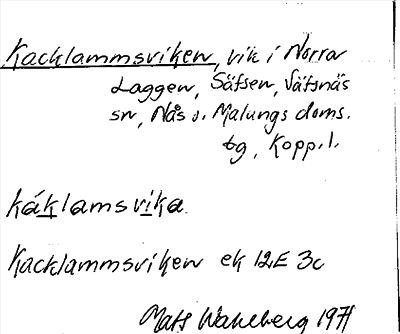 Kacklammsviken, vik i Norra
Laggen, Säfsen, Säfsnäs
sn, Nås o. Malungs doms.
tg, Kopp.l.
káklamsvika
Kacklammsviken ek 12E 3c
Mats Wahlberg 1971